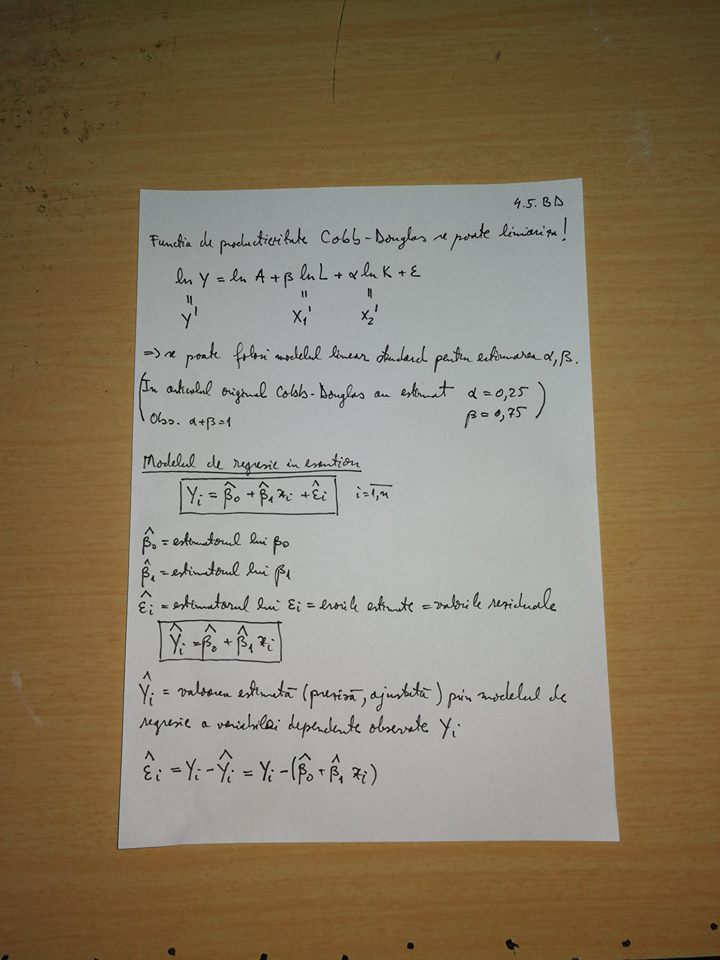 4.5. BD
Functia de productivitate Cobb-Douglas se poate liniariza!
ln Y = ln A + β ln L + α ln K + ε
Y' X₁' X₂'
=> se poate folosi modelul linear standard pentru estimarea α, β.
(In articolul original Cobb-Douglas au estimat α = 0,25
Obs. α+β=1 β = 0,75)
Modelul de regresie in esantion
Yi = β̂₀ + β̂₁ xi + ε̂i i=1,n
β̂₀ = estimatorul lui β₀
β̂₁ = estimatorul lui β₁
ε̂i = estimatorul lui εi = erorile estimate = valorile reziduale
Ŷi = β̂₀ + β̂₁ xi
Ŷi = valoarea estimată (previză, ajustată) prin modelul de
regresie a variabilei dependente observate Yi
ε̂i = Yi - Ŷi = Yi - (β̂₀ + β̂₁ xi)